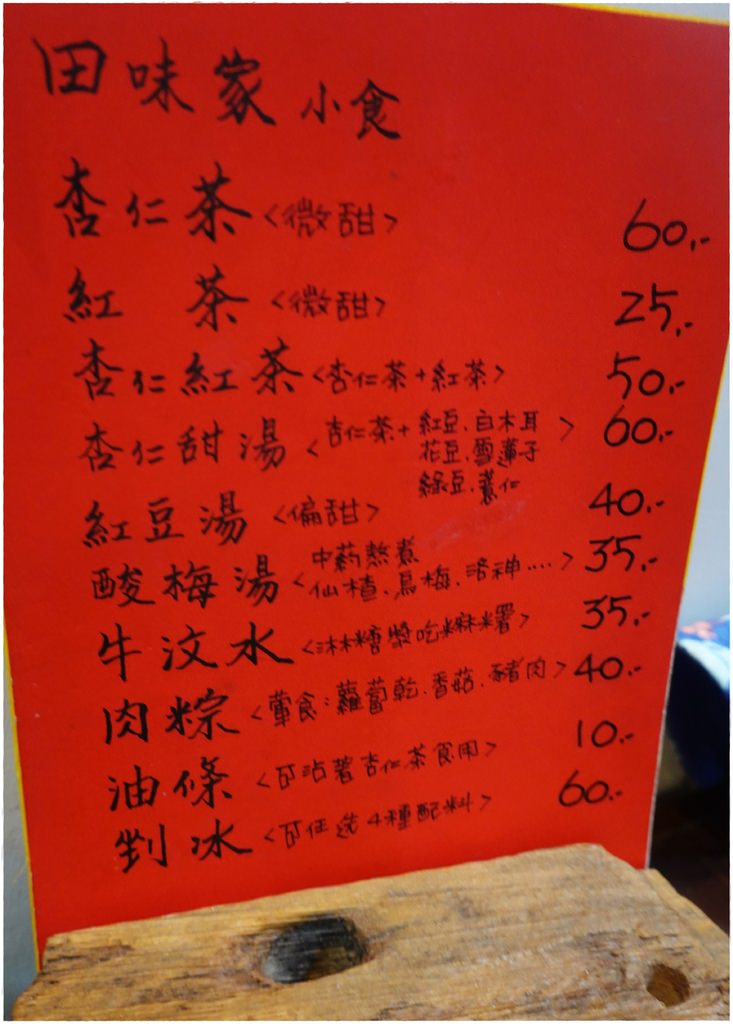 田味家 小食
杏仁茶<微甜> 60.-
紅 茶<微甜> 25.-
杏仁紅茶<杏仁茶+紅茶> 50.-
杏仁甜湯<杏仁茶+紅豆.白木耳> 60.-
花豆.雪蓮子
綠豆.薏仁
紅豆湯<偏甜> 40.-
中葯熬煮
酸梅湯<仙楂.烏梅.洛神....> 35.-
牛汶水<沐林糖漿吃糍糬> 35.-
肉粽<葷食:蘿蔔乾.香菇.豬肉> 40.-
油條<可沾著杏仁茶食用> 10.-
剉冰<可任选4種配料> 60.-